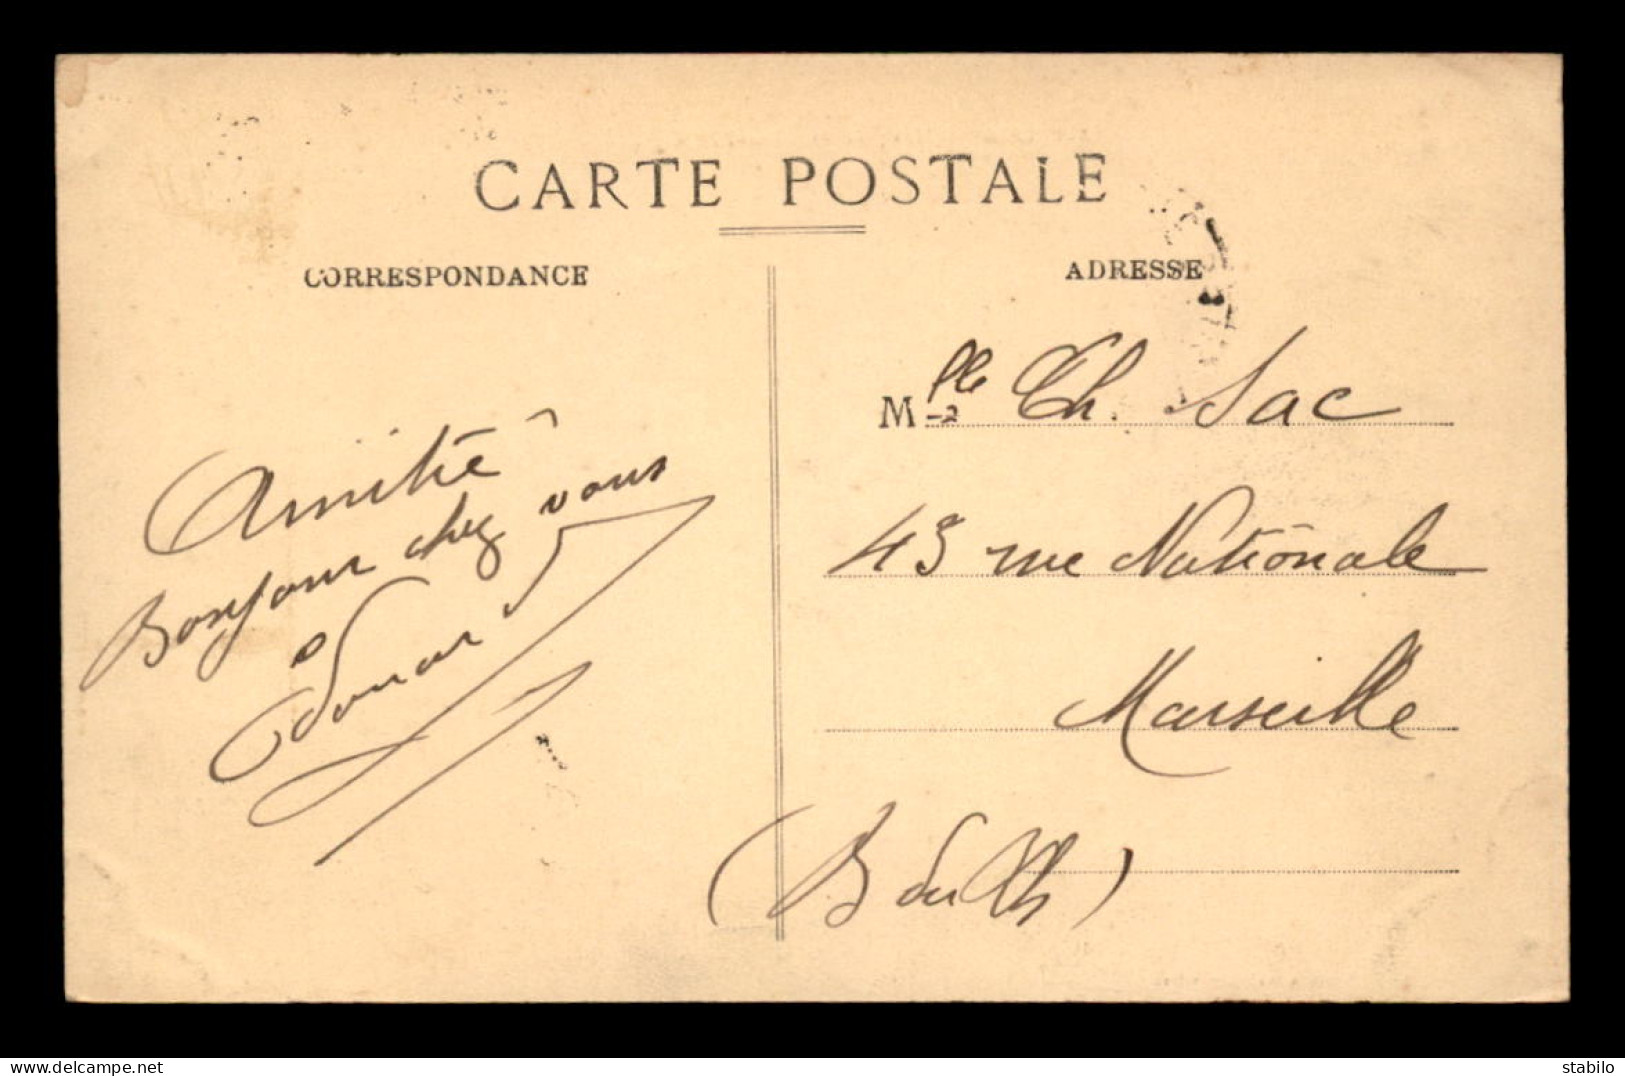 CARTE POSTALE
CORRESPONDANCE
ADRESSE
Mlle Ch. Sac
43 rue Nationale
Marseille
(B du Rh)
Amitié
Bonjour chez vous
Edouard
delcampe.net
stabilo